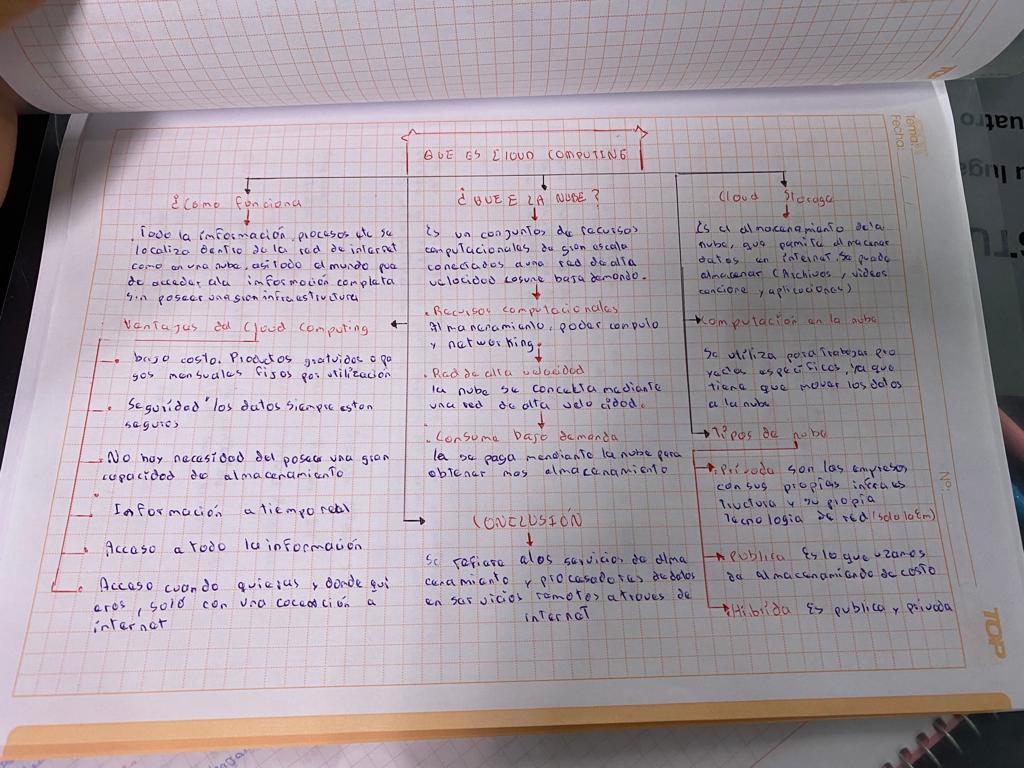 QUE ES CLOUD COMPUTING
¿Como funciona
.Todo la información, procesos etc se
localiza dentro de la red de internet
como en una nube, asi todo el mundo pue
de acceder ala imformación completa
sin poseer una gran infraestructura
Ventajas del Cloud Computing
bajo costo. Productos gratuidos o pa
gos mensuales fijos por utilización
Seguridad los datos siempre eston
seguros
No hoy necesidad del poseer una gran
capacidad de almacenamiento
Información a tiempo real
Acceso a todo la información
Acceso cuando quieras y donde qui
eres, solo con una coceccion a
internet
¿QUE E LA NUBE?
Es un conjuntos de recursos
computacionales de gran escala
conectados a una red de alta
velocidad cosume baja demando.
.Recursos computacionales
Almancramiento, poder computo
y networking.
.Red de alta velocidad
la nube se concekta mediante
una red de alta velo cidad.
.Consume bajo demanda
la se paga mendiante la nube para
obtener mas almacenamiento
CONCLUSIÓN
Se refiere alos servicios de alma
cenamiento y procesadores de datos
en servicios remotos a traves de
internet
Cloud Storage
Es el almacenamiento dela
nube, que pamita almacenar
datos en internet, se puede
almacenar (Archivos, videos
cancione y aplicaciones)
Computación en la nube
Se utiliza para trabajar pro
yectos especificos, ya que
tiene que mover los datos
a la nube
Tipos de nube
.Privada son las empresas
con sus propias infraes
tructura y su propia
tecnologia de red (solo la Em)
publica Es lo que uzamos
de almacenamiendo de costo
Hibrida Es publica y privada
Tema
Fecha:
Nº:
TOP
uatro
u luga